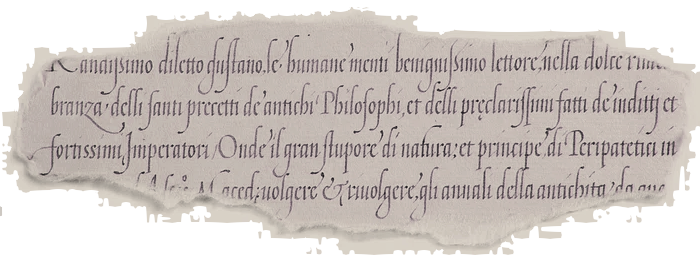 Randissimo diletto gustano, le humane menti benignissimo lettore, nella dolce
branza, delli santi precetti de antichi Philosophi, et delli pręclarissimi fatti de inclitj et
fortissimi Imperatori, Onde il gran stupore di natura, et principe di Peripatetici in
Maced: volgere & rivolgere, gli annali della antichita, da